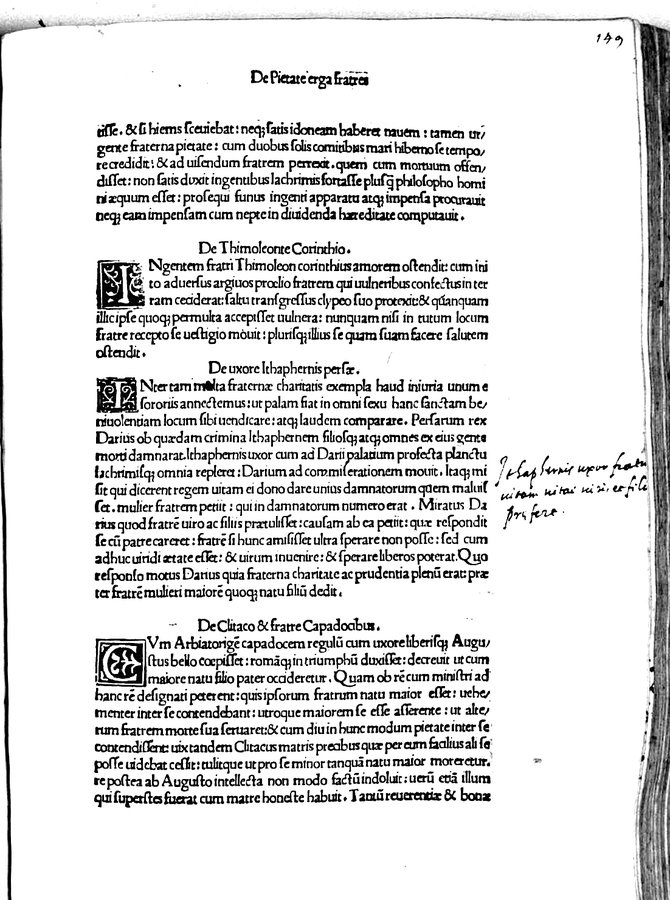 149
De Pietate erga fratres
tisse. & si hiems sceuiebat: neq; satis idoneam haberet nauem: tamen ur/
gente fraterna pietate: cum duobus solis comitibus mari hiberno se tempo/
re credidit: & ad uisendum fratrem perrexit. quem cum mortuum offen/
disset: non satis duxit ingentibus lachrimis fortasse plusq̃ philosopho homi
ni æquum esset: prosequi funus ingenti apparatu atq; impensa procurauit
neq; eam impensam cum nepte in diuidenda hæreditate computauit.
De Thimoleonte Corinthio.
INgentem fratri Thimoleon corinthius amorem ostendit: cum ini
to aduersus argiuos prœlio fratrem qui uulneribus confectus in ter
ram ceciderat: saltu transgressus clypeo suo protexit: & q̃uanquam
illic ipse quoq; permulta accepisset uulnera: nunquam nisi in tutum locum
fratre recepto se uestigio mouit: plurisq; illius se quam suam facere salutem
ostendit.
De uxore Ithaphernis persæ.
INter tam multa fraternæ charitatis exempla haud iniuria unum e
sororiis annectemus: ut palam fiat in omni sexu hanc sanctam be/
niuolentiam locum sibi uendicare: atq; laudem comparare. Persarum rex
Darius ob quædam crimina Ithaphernem filiosq; atq; omnes ex eius gente
morti damnarat. Ithaphernis uxor cum ad Darii palatium profecta planctu
lachrimisq; omnia repleret: Darium ad commiserationem mouit. Itaq; mi
sit qui dicerent regem uitam ei dono dare unius damnatorum quem maluis
set. mulier fratrem petiit: qui in damnatorum numero erat. Miratus Da
rius quod fratrẽ uiro ac filiis prætulisset: causam ab ea petiit: quæ respondit
se cũ patre careret: fratrẽ si hunc amisisset ultra sperare non posse: sed cum
adhuc uiridi ætate esset: & uirum inuenire: & sperare liberos poterat. Quo
responso motus Darius quia fraterna charitate ac prudentia plenũ erat: præ
ter fratrẽ mulieri maiorẽ quoq; natu filiũ dedit.
Ithaphernis uxor
De Clitaco & fratre Capadocibus.
CVm Arbiatorigẽ capadocem regulũ cum uxore liberisq; Augu/
stus bello cœpisset: romãq; in triumphũ duxisset: decreuit ut cum
maiore natu filio pater occideretur. Quam ob rẽ cum ministri ad
hanc rẽ designati peterent: quis ipsorum fratrum natu maior esset: uehe/
menter inter se contendebant: utroque maiorem se esse asserente: ut alte/
rum fratrem morte sua seruaret: & cum diu in hunc modum pietate inter se
contendissent: uix tandem Clitacus matris precibus quæ per eum facilius ali se
posse uidebat cessit: tulitque ut pro se minor tanquã natu maior moreretur.
re postea ab Augusto intellecta non modo factũ indoluit: uerũ etiã illum
qui superstes fuerat cum matre honeste habuit. Tantũ reuerentiæ & bonæ